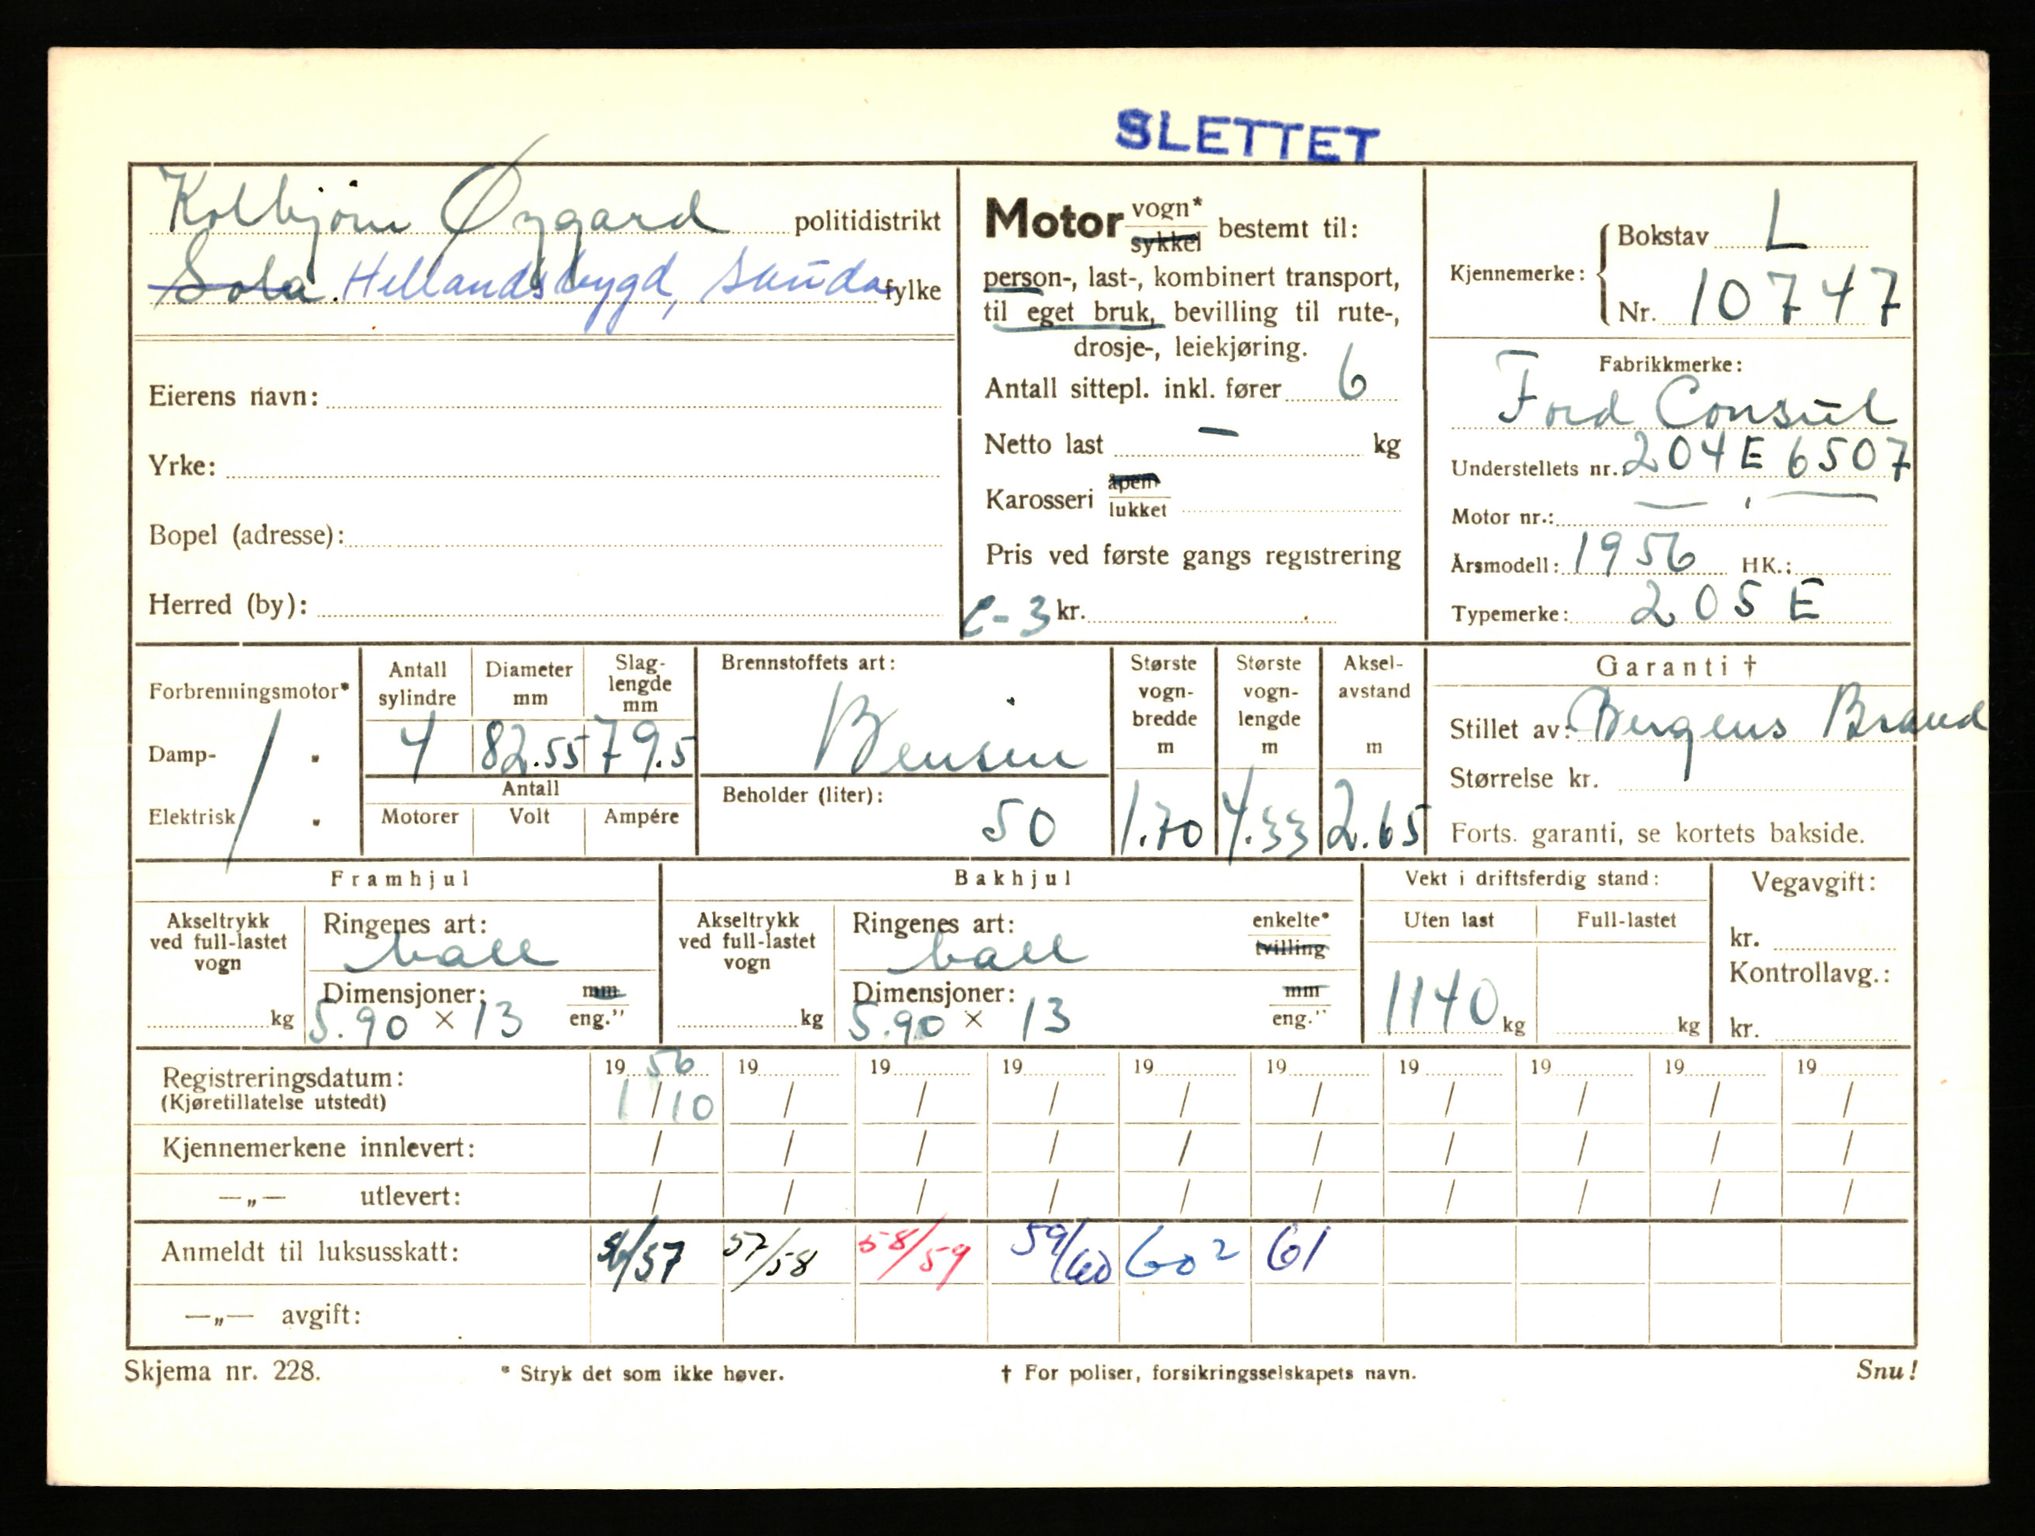 SLETTET
Kolbjørn Øygard politidistrikt
Sola. Hellandsbygd, Sauda fylke
Eierens navn:
Yrke:
Bopel (adresse):
Herred (by):
Motor vogn* sykkel bestemt til:
person-, last-, kombinert transport,
til eget bruk, bevilling til rute-,
drosje-, leiekjøring.
Antall sittepl. inkl. fører 6
Netto last — kg
Karosseri åpen lukket
Pris ved første gangs registrering
C-3 kr.
Kjennemerke: Bokstav L
Nr. 10747
Fabrikkmerke:
Ford Consul
Understellets nr. 204E 6507
Motor nr.: — " —
Årsmodell: 1956 HK.:
Typemerke: 205 E
Forbrenningsmotor*
Damp- "
Elektrisk "
Antall sylindre 4
Diameter mm 82.55
Slag-lengde mm 79.5
Antall
Motorer Volt Ampére
Brennstoffets art:
Bensin
Beholder (liter):
50
Største vogn-bredde m 1.70
Største vogn-lengde m 4.33
Aksel-avstand m 2.65
Garanti †
Stillet av: Bergens Brand
Størrelse kr.
Forts. garanti, se kortets bakside.
Framhjul
Akseltrykk ved full-lastet vogn
kg
Ringenes art:
ball
Dimensjoner: mm
5.90 × 13 eng."
Bakhjul
Akseltrykk ved full-lastet vogn
kg
Ringenes art: enkelte*
ball tvilling
Dimensjoner: mm
5.90 × 13 eng."
Vekt i driftsferdig stand:
Uten last Full-lastet
1140 kg kg
Vegavgift:
kr.
Kontrollavg.:
kr.
Registreringsdatum: 19 56 19 19 19 19 19 19 19 19 19
(Kjøretillatelse utstedt) 1/10 / / / / / / / / /
Kjennemerkene innlevert: / / / / / / / / / /
—„— utlevert: / / / / / / / / / /
Anmeldt til luksusskatt: 56/57 57/58 58/59 59/60 60² 61
—„— avgift:
Skjema nr. 228. * Stryk det som ikke høver. † For poliser, forsikringsselskapets navn. Snu!